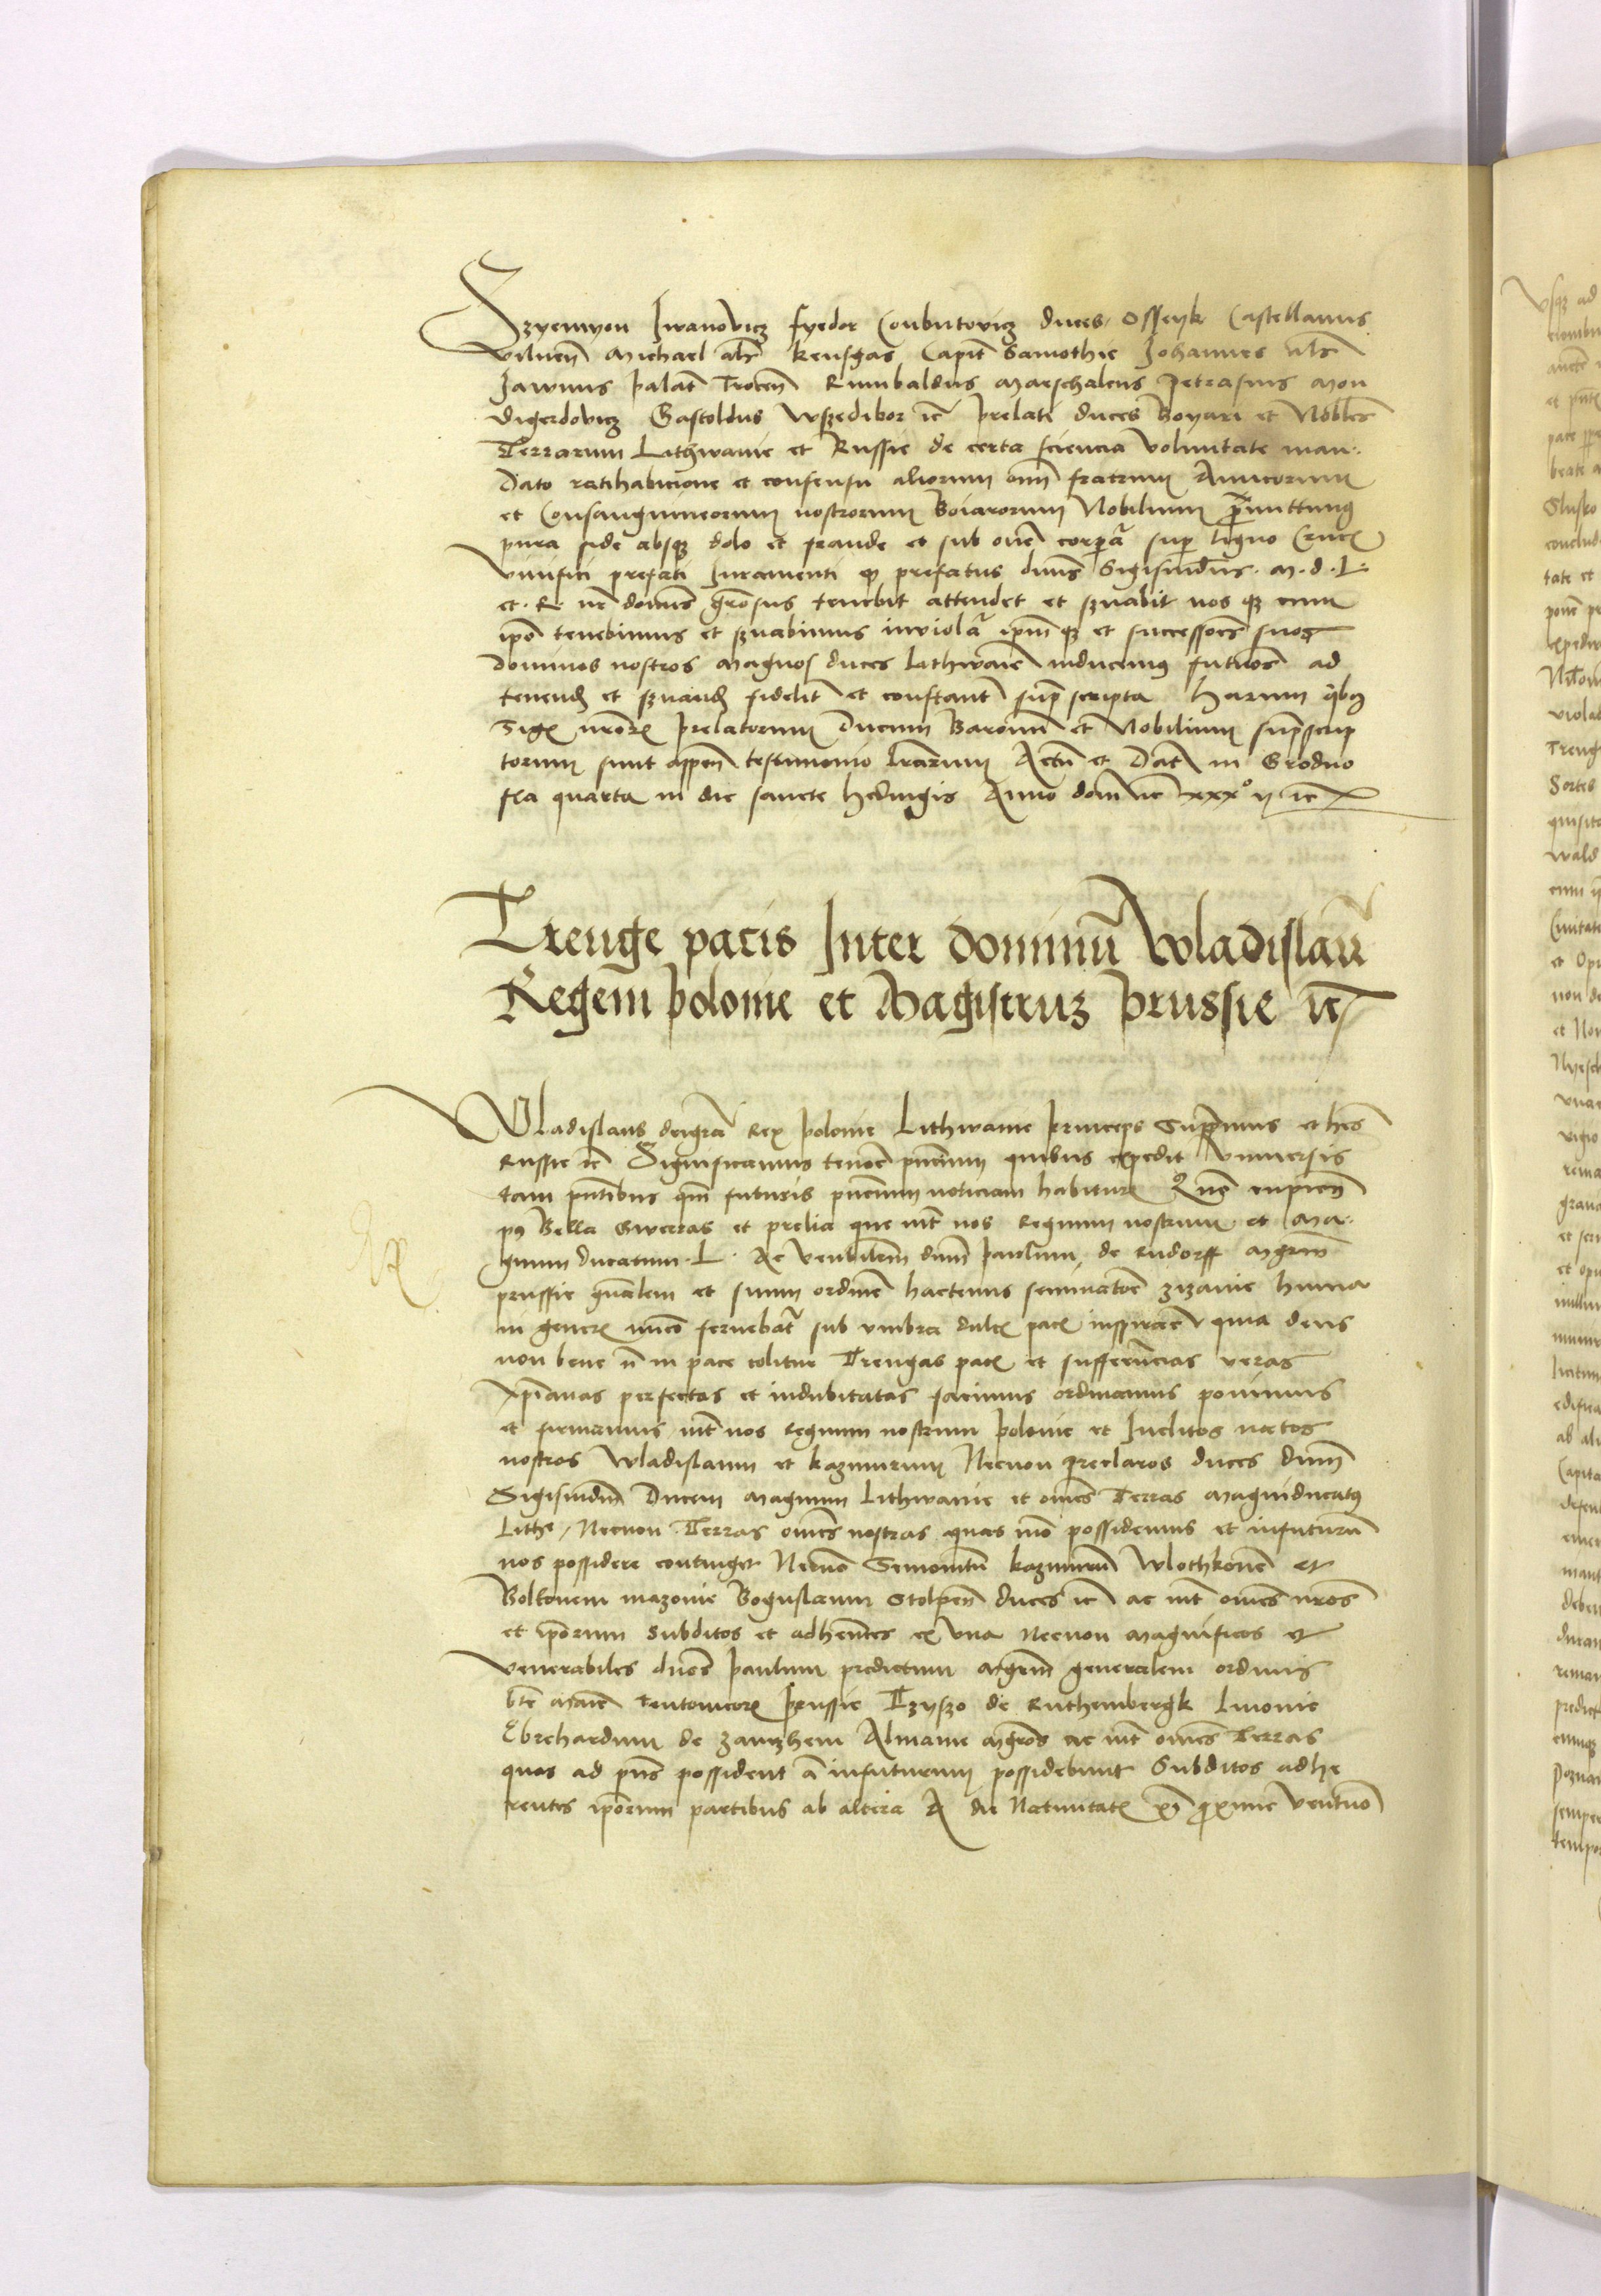 Szyemyon Iwanovicz Fyedor Coributovicz duces Osseyk Castellanus
vilneñ Michael alr̃ kensgas Capit̃ Samothie Johannes als̃
Jawnus palat̃ Troceñ Rumbaldus Marschalcus Petrasius Mon
digerdovicz Gastoldus wszedibor ꝛc̃ prelati duces Boyari et Nobiles
Terrarum Lithwanie et Russie de certa sciencia voluntate man
dato ratihabicione et consensu aliorum om̃ fratrum Amicorum
et Consanguineorum nostrorum Boiarorum Nobilium p̃mittimus
pura fide absqꝫ dolo et fraude et sub oñe corp̃ali sup̃ ligno Crucis
vivifici prefati Iuramenti qꝫ prefatus dñus Sigismũdus M. d. L.
et R. ñr dom̃s g̃rosus tenebit attendet et szuabit nos qꝫ cum
ip̃o tenebimus et szuabimus inviolat̃ ip̃mqꝫ et successores suos
dominos nostros Magnos duces Lithwanie inducemus futuros ad
tenend̃ et szuand̃ fidelit̃ et constant̃ sup̃ scripta Harum qibꝫ
Sigᷓ nr̃orᷓ prelatorum Ducum Baronum et Nobilium sup̃scrip
torum sunt appeñ testimonio lr̃arum Actũ et Dat̃ in Grodno
fr̃ia quarta in die sancte hedwigis Anno dom̃ ꝛc̃ xxx° ij ꝛc̃
Treuge pacis Inter dominũ Wladislaũ
Regem Polonie et Magistruꝫ Prussie ꝛc̃
Wladislaus dei gr̃a Rex Polonie Lithwanie Princeps Sup̃mus et hes̃
Russie ꝛc̃ Significamus tenore pñcium quibus expedit Vniversis
tam pñtibus qm̃ futuris pñcium noticiam habiturᷓ Qm̃ cupieñ
Bella Gwerras et prelia que int̃ nos Regnum nostrum et Ma
gnum ducatum L. Ac Venbilem dñm Paulum de Rudorff Mgr̃m
prussie gñalem et suum ordinẽ hactenus seminatore zizanie huma
in genere fervebat̃ sub vmbra dulcᷓ pacᷓ inspirare quia deus
non bene ñ in pace colitur Treugas pacᷓ et sufferencias veras
xp̃ianas perfectas et indubitatas facimus ordinamus ponimus
et firmamus int̃ nos Regnum nostrum Polonie et Inclitos natos
nostros Wladislaum et kazimirum Necnon preclaros duces dñm
Sigismũdm̃ Ducem Magnum Lithwanie et om̃es Terras Magni ducatus
Lithe, Necnon Terras om̃es nostras quas mõ possidemus et infuturum
nos possidere continget Necnõ Semovitũ kazimirũ Wlothkonẽ et
Bolkonem mazovie Boguslaum Stolpeñ duces ꝛc̃ ac int̃ om̃es nr̃os
et ip̃orum Subditos et adheñtes ex vna Necnon Magnificos et
Venerabiles dños Paulum predictum Mgr̃m generalem ordinis
bt̃e Marie teutonicorᷓ Prussie Czyszo de Ruthembergk Livonie
Ebrehardum de zawzhem Almanie Mgr̃os ac int̃ om̃es Terras
quas ad pñs possident a infuturum possidebunt Subditos adhe
rentes ip̃orum partibus ab altera A die Nativitatᷓ xp̃i p̃xime Venturo